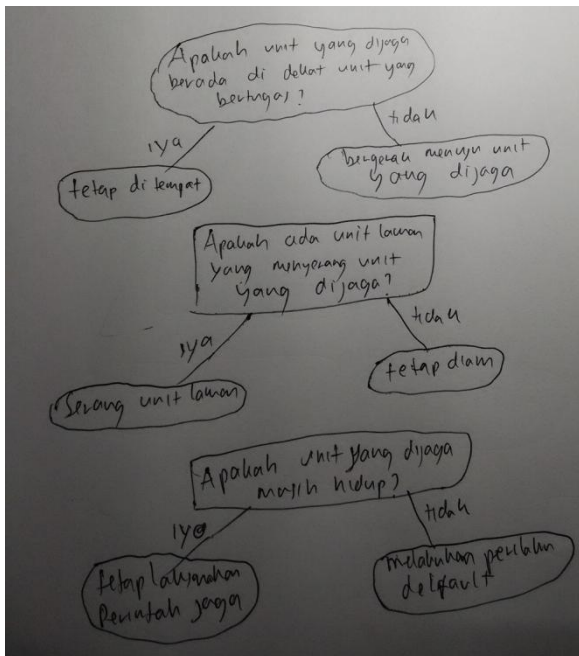 Apakah unit yang dijaga
berada di dekat unit yang
bertugas?
iya
tidak
tetap di tempat
bergerak menuju unit
yang dijaga
Apakah ada unit lawan
yang menyerang unit
yang dijaga?
iya
tidak
Serang unit lawan
tetap diam
Apakah unit yang dijaga
masih hidup?
iya
tidak
tetap laksanakan
Perintah jaga
melakukan perilaku
default